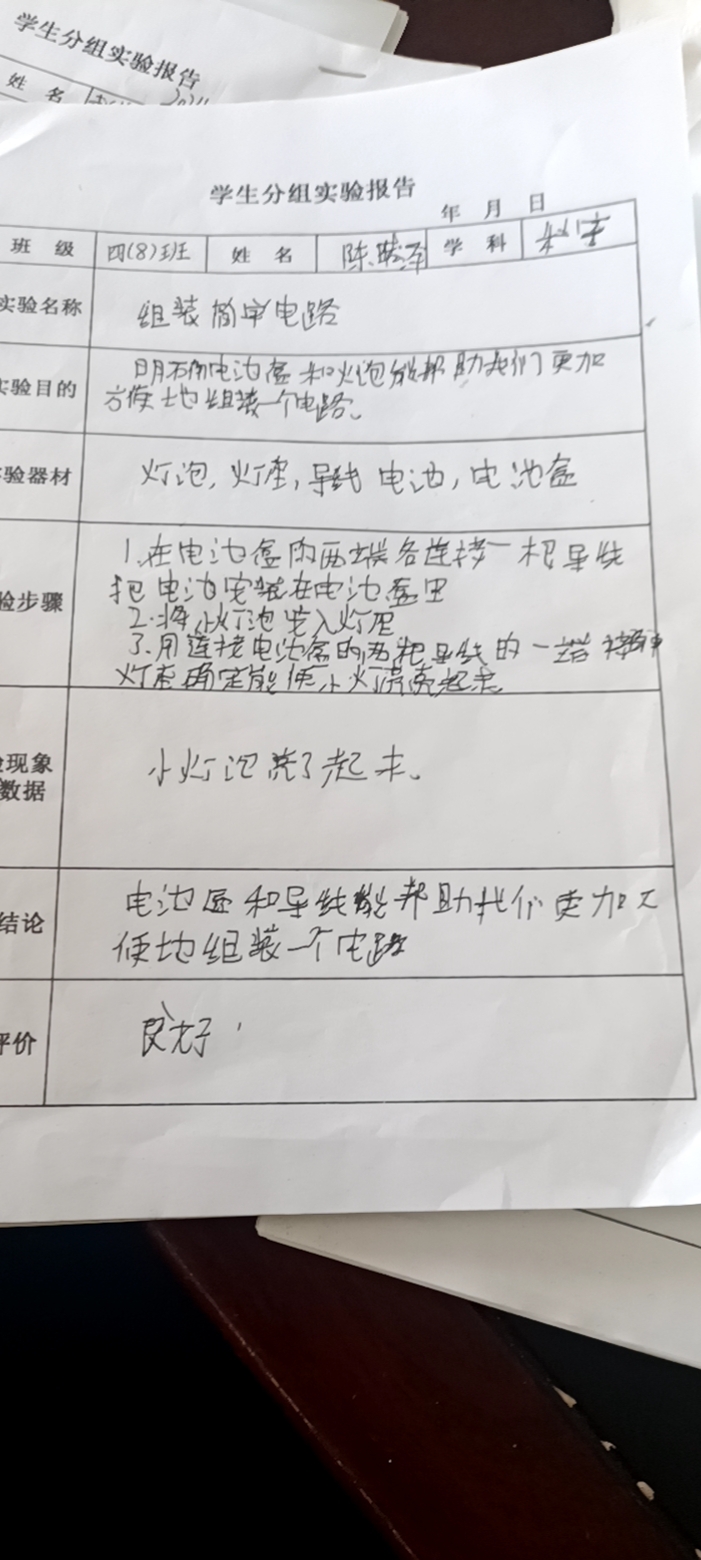 学生分组实验报告
姓 名
学生分组实验报告
年 月 日
班 级 四(8)班 姓 名 陈 泽 学 科 科学
实验名称 组装简单电路
实验目的 明确电池盒和灯泡能帮助我们更加
方便地组装一个电路。
验器材 灯泡,灯座,导线 电池,电池盒
1.在电池盒的两端各连接一根导线
验步骤 把电池安装在电池盒里
2.将小灯泡安入灯座
3.用连接电池盒的两根导线的一端接触
灯座确定能使小灯泡亮起来
现象
数据 小灯泡亮了起来。
结论 电池盒和导线能帮助我们更加方
便地组装一个电路
评价 良好